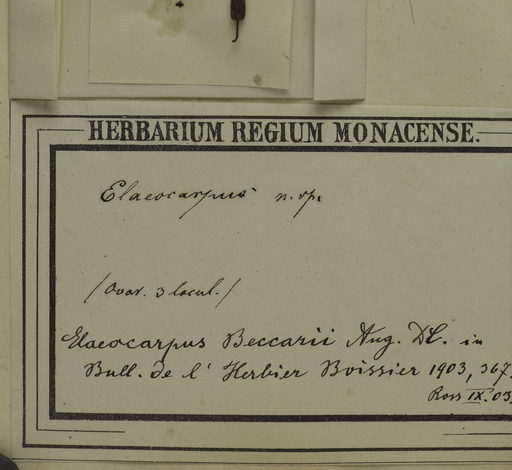 HERBARIUM REGIUM MONACENSE.
Elaeocarpus n. sp.
/Ovar. 3 locul./
Elaeocarpus Beccarii Aug. DC. in
Bull. de l' Herbier Boissier 1903, 367.
Ross IX. 03.